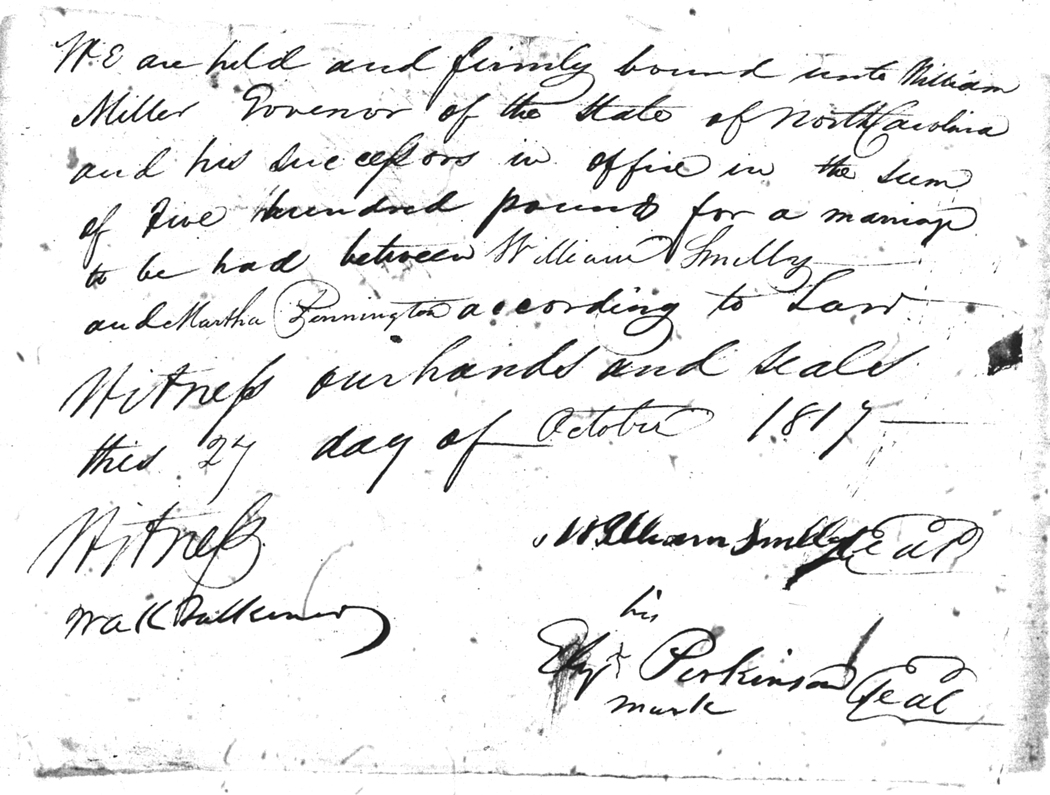 WE are held and firmly bound unto William
Miller Governor of the State of North Carolina
and his successors in office in the sum
of five hundred pounds for a marriage
to be had between William Smelly
and Martha Pennington according to Law
Witness our hands and seals
this 27 day of October 1817
Witness William Smelly Seal
his
Perkinson Seal
mark